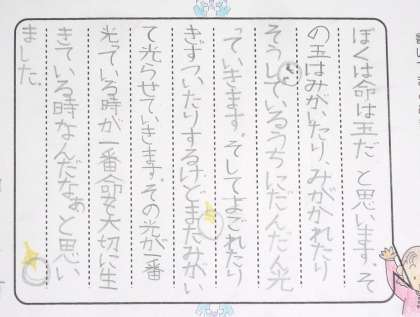 ぼくは命は玉だと思います。そ
の玉はみがいたり、みがかれたり
そうしているうちにだんだん光
っていきます。そしてよごれたり
きずついたりするけどまたみがい
て光らせていきます。その光が一番
光っている時が一番命を大切に生
きている時なんだなぁと思い
ました。